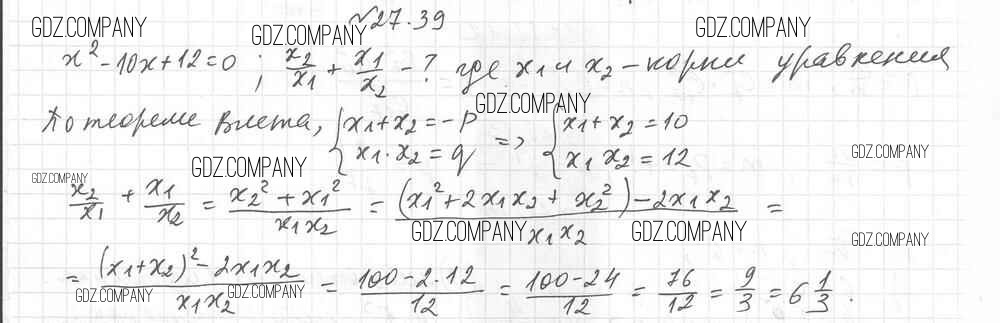 №27.39
GDZ.COMPANY GDZ.COMPANY GDZ.COMPANY
x² - 10x + 12 = 0 ; x₂/x₁ + x₁/x₂ - ? где x₁ и x₂ - корни уравнения
GDZ.COMPANY
По теореме Виета, { x₁ + x₂ = -p => { x₁ + x₂ = 10
x₁ · x₂ = q x₁ x₂ = 12
GDZ.COMPANY GDZ.COMPANY
GDZ.COMPANY
x₂/x₁ + x₁/x₂ = (x₂² + x₁²)/(x₁x₂) = ((x₁² + 2x₁x₂ + x₂²) - 2x₁x₂)/(x₁x₂) =
GDZ.COMPANY GDZ.COMPANY GDZ.COMPANY
= ((x₁ + x₂)² - 2x₁x₂)/(x₁x₂) = (100 - 2 · 12)/12 = (100 - 24)/12 = 76/12 = 9/3 = 6 1/3 .
GDZ.COMPANY GDZ.COMPANY